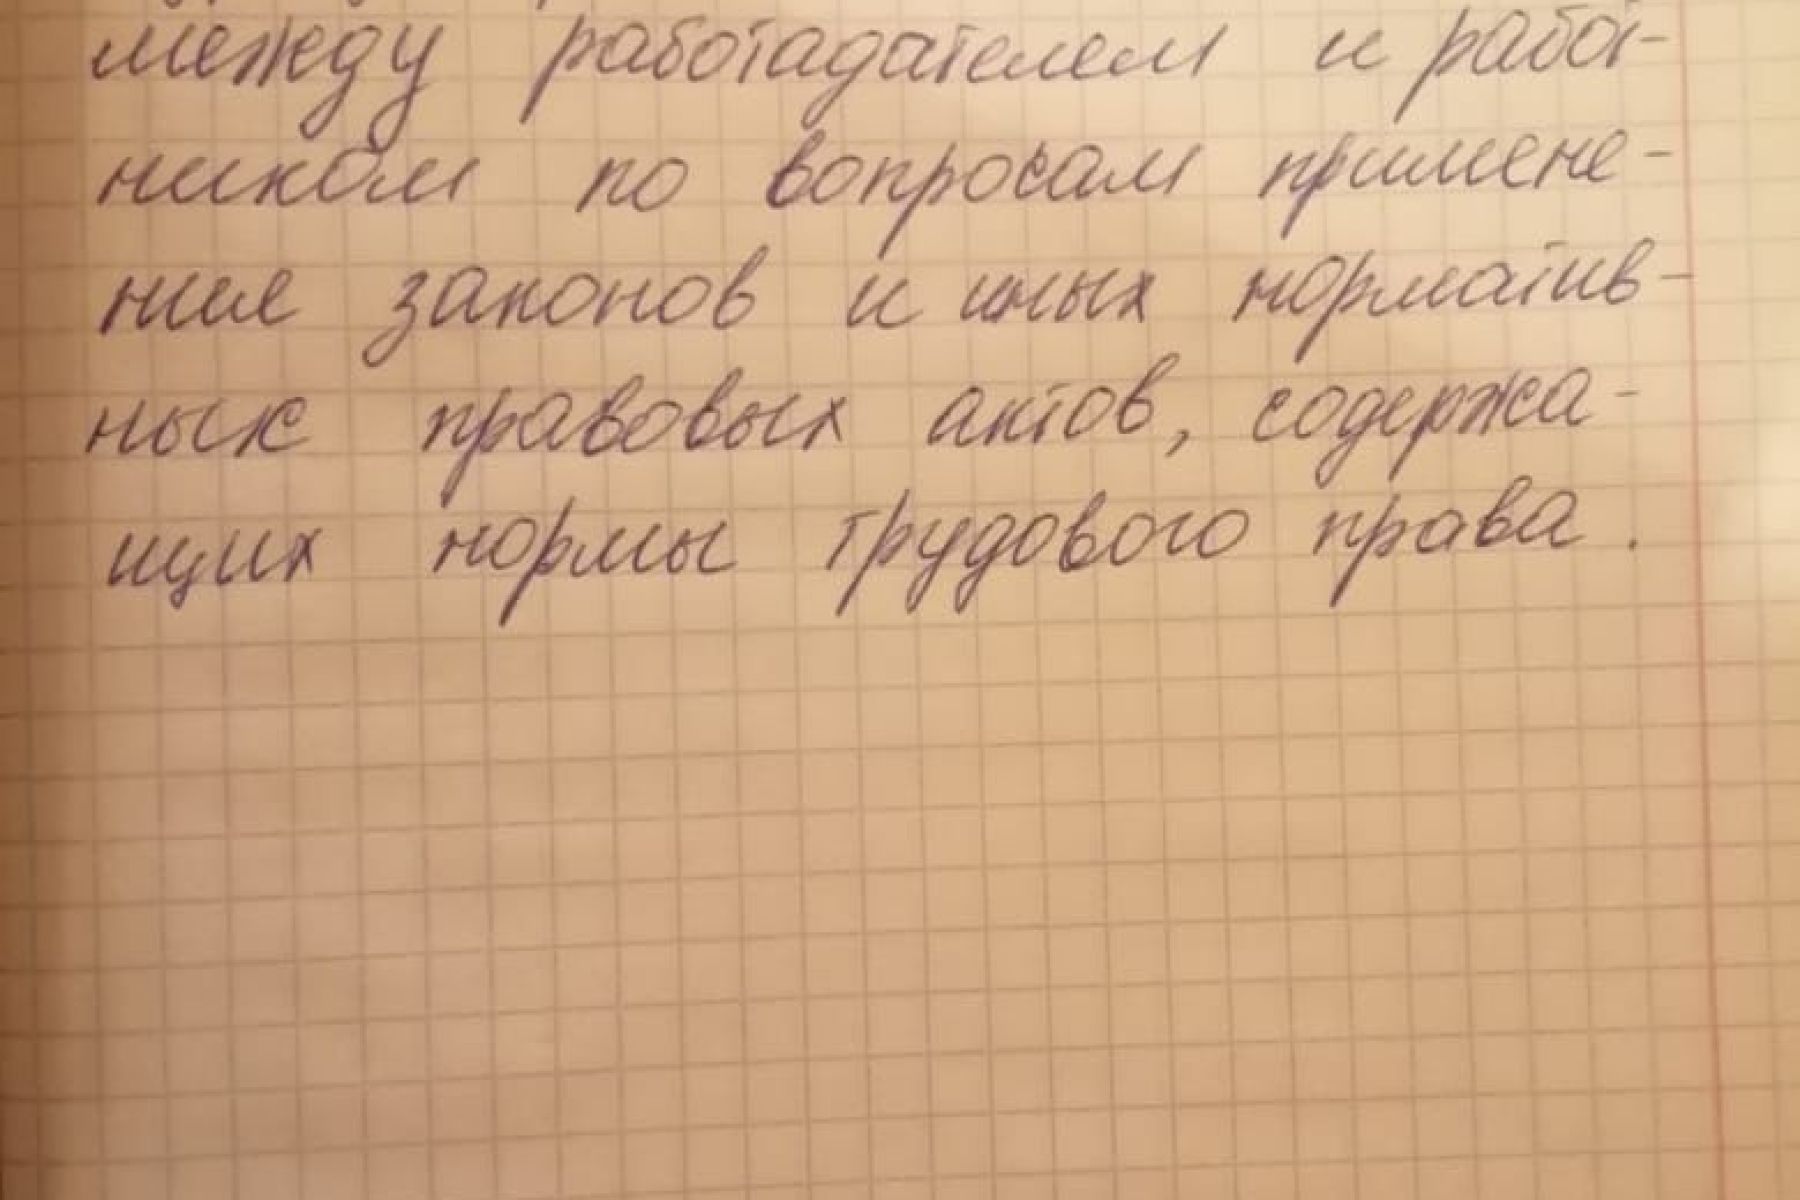 между работадателем и работ-
ником по вопросам примене-
ние законов и иных норматив-
ных правовых актов, содержа-
щих нормы трудового права.